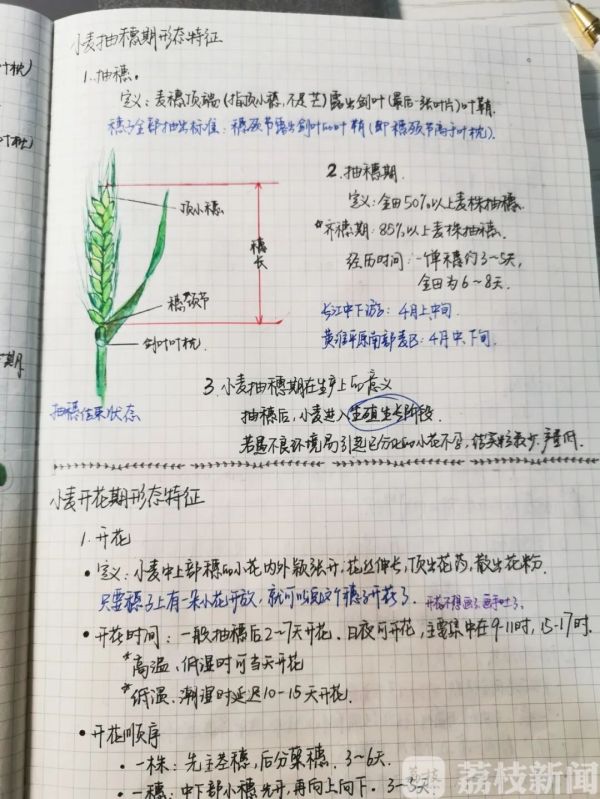 叶枕)
叶枕)
期
小麦抽穗期形态特征
1.抽穗。
定义:麦穗顶端(指顶小穗,不是芒)露出剑叶(最后一张叶片)叶鞘.
穗子全部抽出标准:穗颈节露出剑叶的叶鞘(即穗颈节高于叶枕).
顶小穗
穗长
穗颈节
剑叶叶枕
抽穗结束状态
2.抽穗期
定义:全田50%以上麦株抽穗.
*齐穗期:85%以上麦株抽穗.
经历时间:一单穗约3~5天,
全田为6~8天.
长江中下游:4月上中旬
黄淮平原南部麦区:4月中、下旬.
3.小麦抽穗期在生产上的意义
抽穗后,小麦进入生殖生长阶段.
若遇不良环境易引起已分化的小花不孕,结实粒数少,产量低.
小麦开花期形态特征
1.开花
•定义:小麦中上部穗的小花内外颖张开,花丝伸长,顶出花药,散出花粉.
只要穗子上有一朵小花开放,就可以说这个穗子开花了.
开花不想画了
•开花时间:一般抽穗后2~7天开花.日夜可开花,主要集中在9-11时,15-17时.
*高温、低湿时可当天开花
*低温、潮湿时延迟10-15天开花.
•开花顺序
•一株:先主茎穗,后分蘖穗.3~6天.
•一穗:中下部小穗先开,再向上向下.3~5天.
荔枝新闻